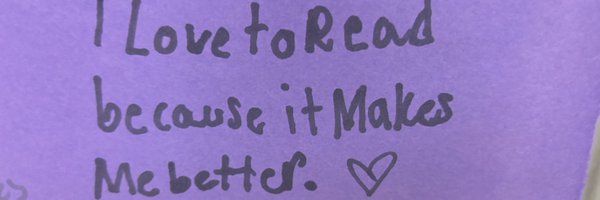 I Love to Read
because it Makes
Me better. ♡